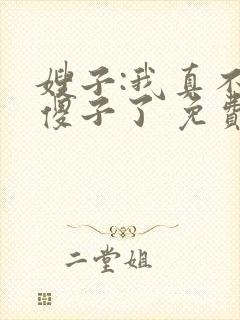 嫂子:我真不
傻子了 免費
二堂姐